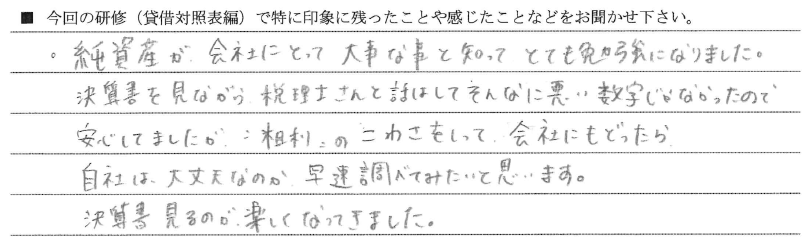 ■ 今回の研修（貸借対照表編）で特に印象に残ったことや感じたことなどをお聞かせ下さい。
。純資産が、会社にとって 大事な事と知って とても勉強になりました。
決算書を見ながら 税理士さんと話はしてそんなに悪い数字じゃなかったので
安心してましたが 〝粗利〟の こわさをしって、会社にもどったら
自社は、大丈夫なのか 早速調べてみたいと思います。
決算書 見るのが、楽しくなってきました。